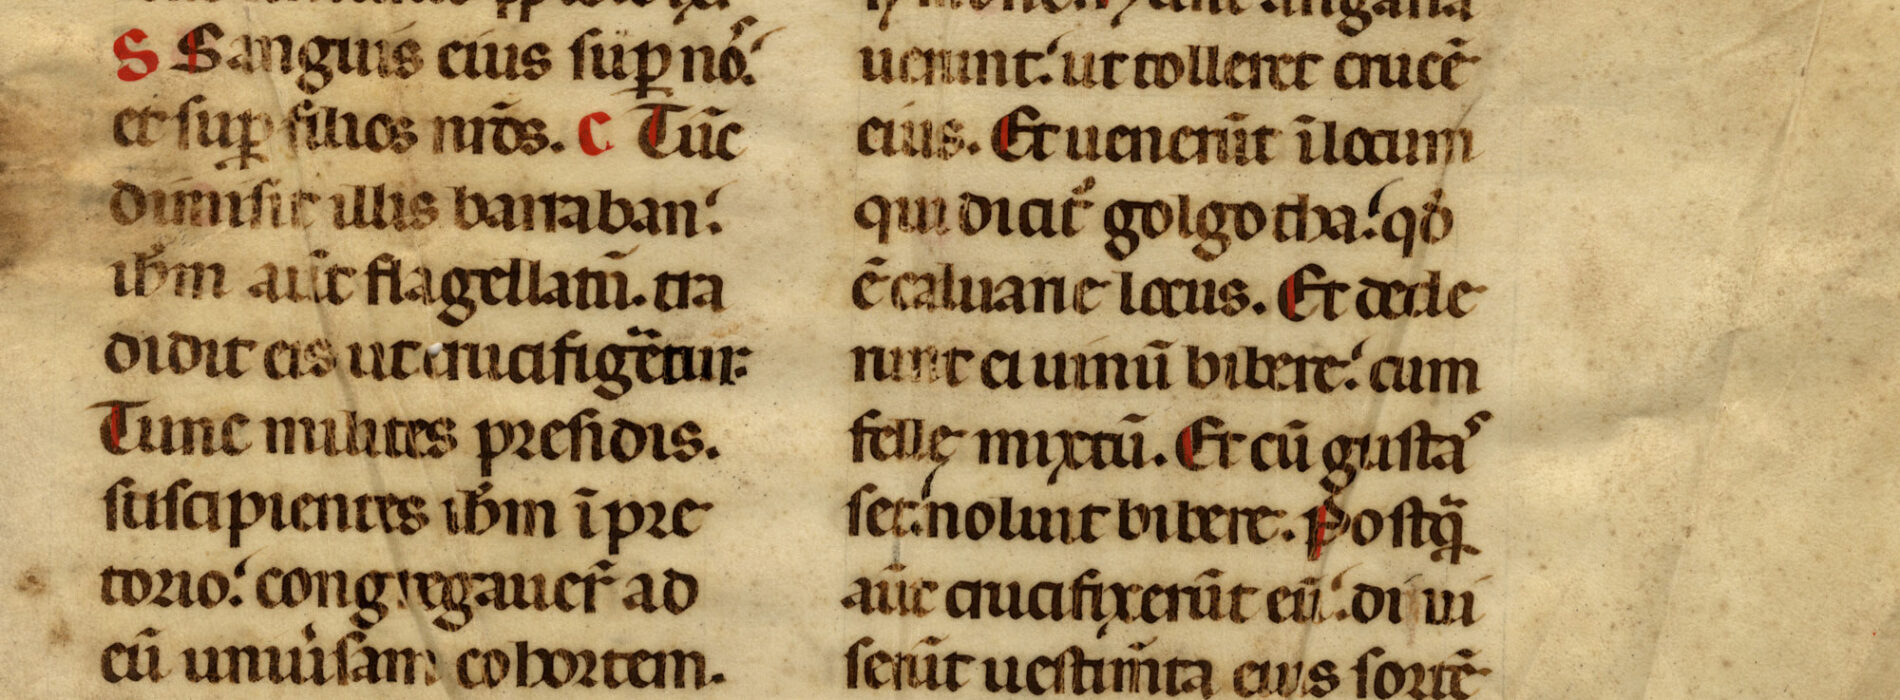 S Sanguis eius sup̄ nō.
et sup̄ filios nr̄os. C Tūc
dimisit illis barraban.
ih̄m aūt flagellatū. tra
didit eis ut crucifigēētur.
Tunc milites presidis.
suscipientes ih̄m ī pre
torio. congregauer̄ ad
eū uniu̇sam cohortem.
uerunt. ut tolleret crucē
eius. Et uenerūt ī locum
qui dicit᷑ golgotha. qd̄
ē caluarie locus. Et dede
runt ei uinū bibere. cum
felle mixtū. Et cū gustaꝰ
set. noluit bibere. Postq̄
aūt crucifixerūt eū. diui
serūt uestim̄ta eius sortē